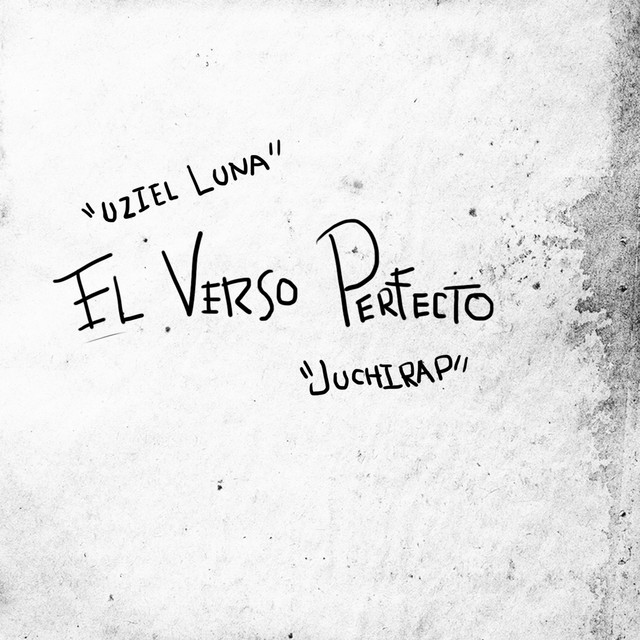 "UZIEL LUNA"
EL VERSO PERFECTO
"JUCHIRAP"